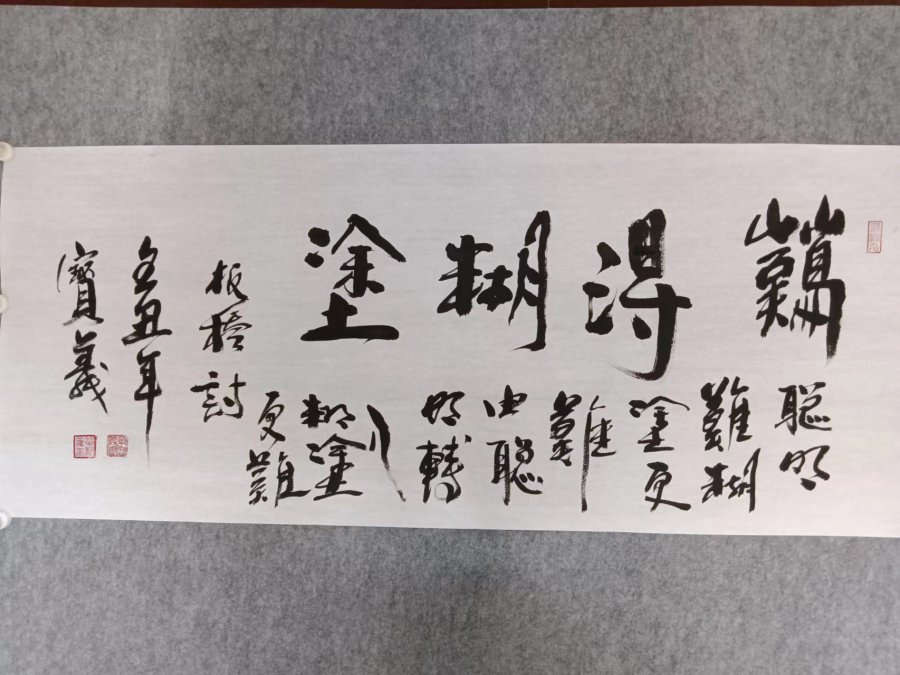 難得糊塗
聰明
難糊
塗更
難
由聰
明轉
入
糊塗
更難
板橋詩
辛丑年
寶義